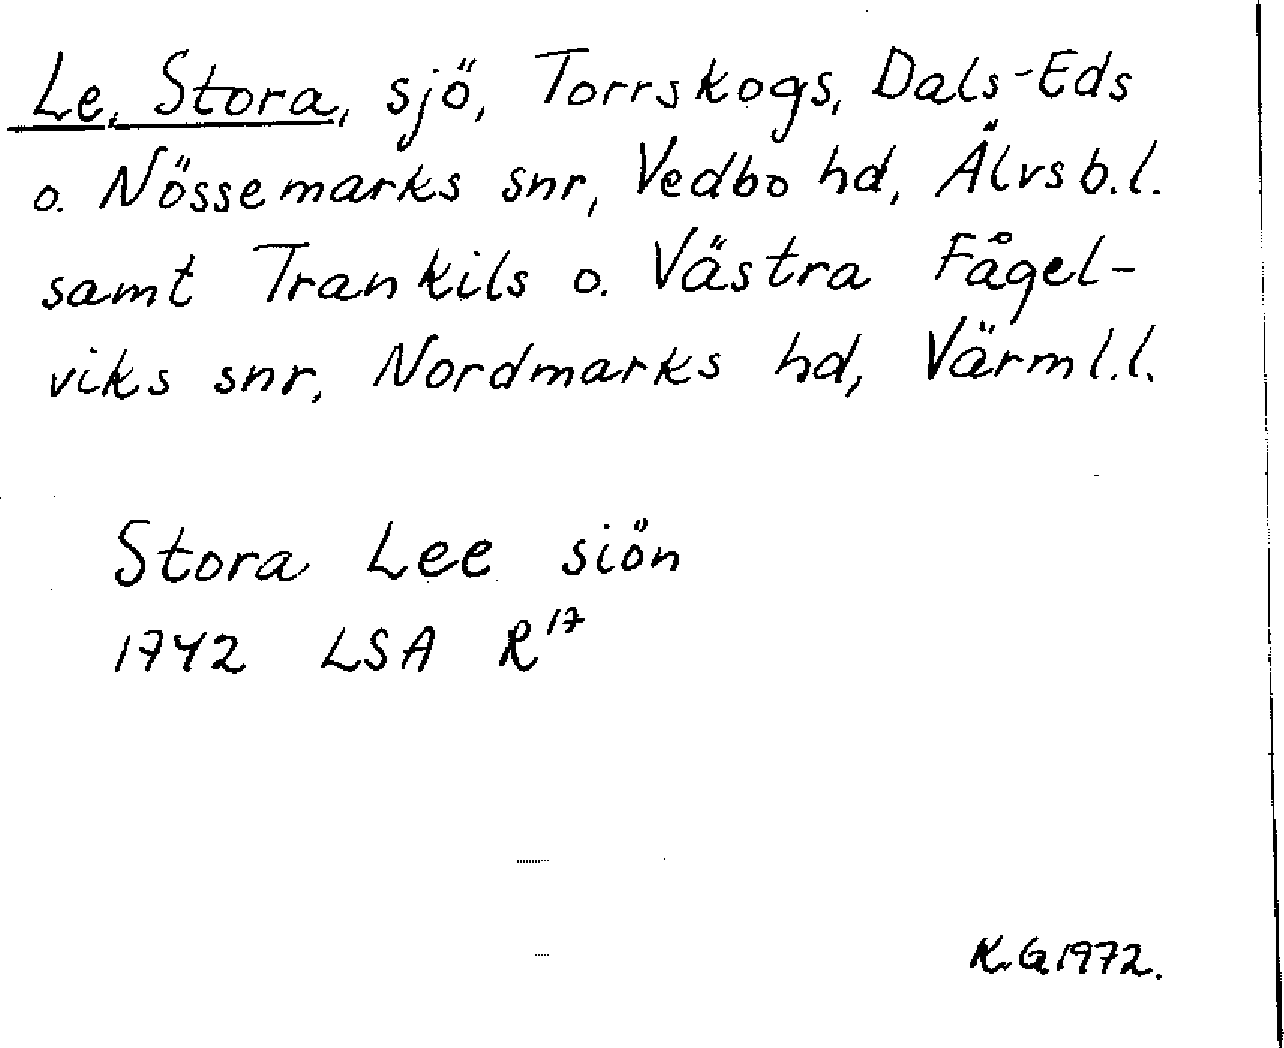 Le, Stora, sjö, Torrskogs, Dals-Eds
o. Nössemarks snr, Vedbo hd, Älvsb.l.
samt Trankils o. Västra Fågel-
viks snr, Nordmarks hd, Värml.l.
Stora Lee siön
1742 LSA R¹⁷
K.G. 1972.